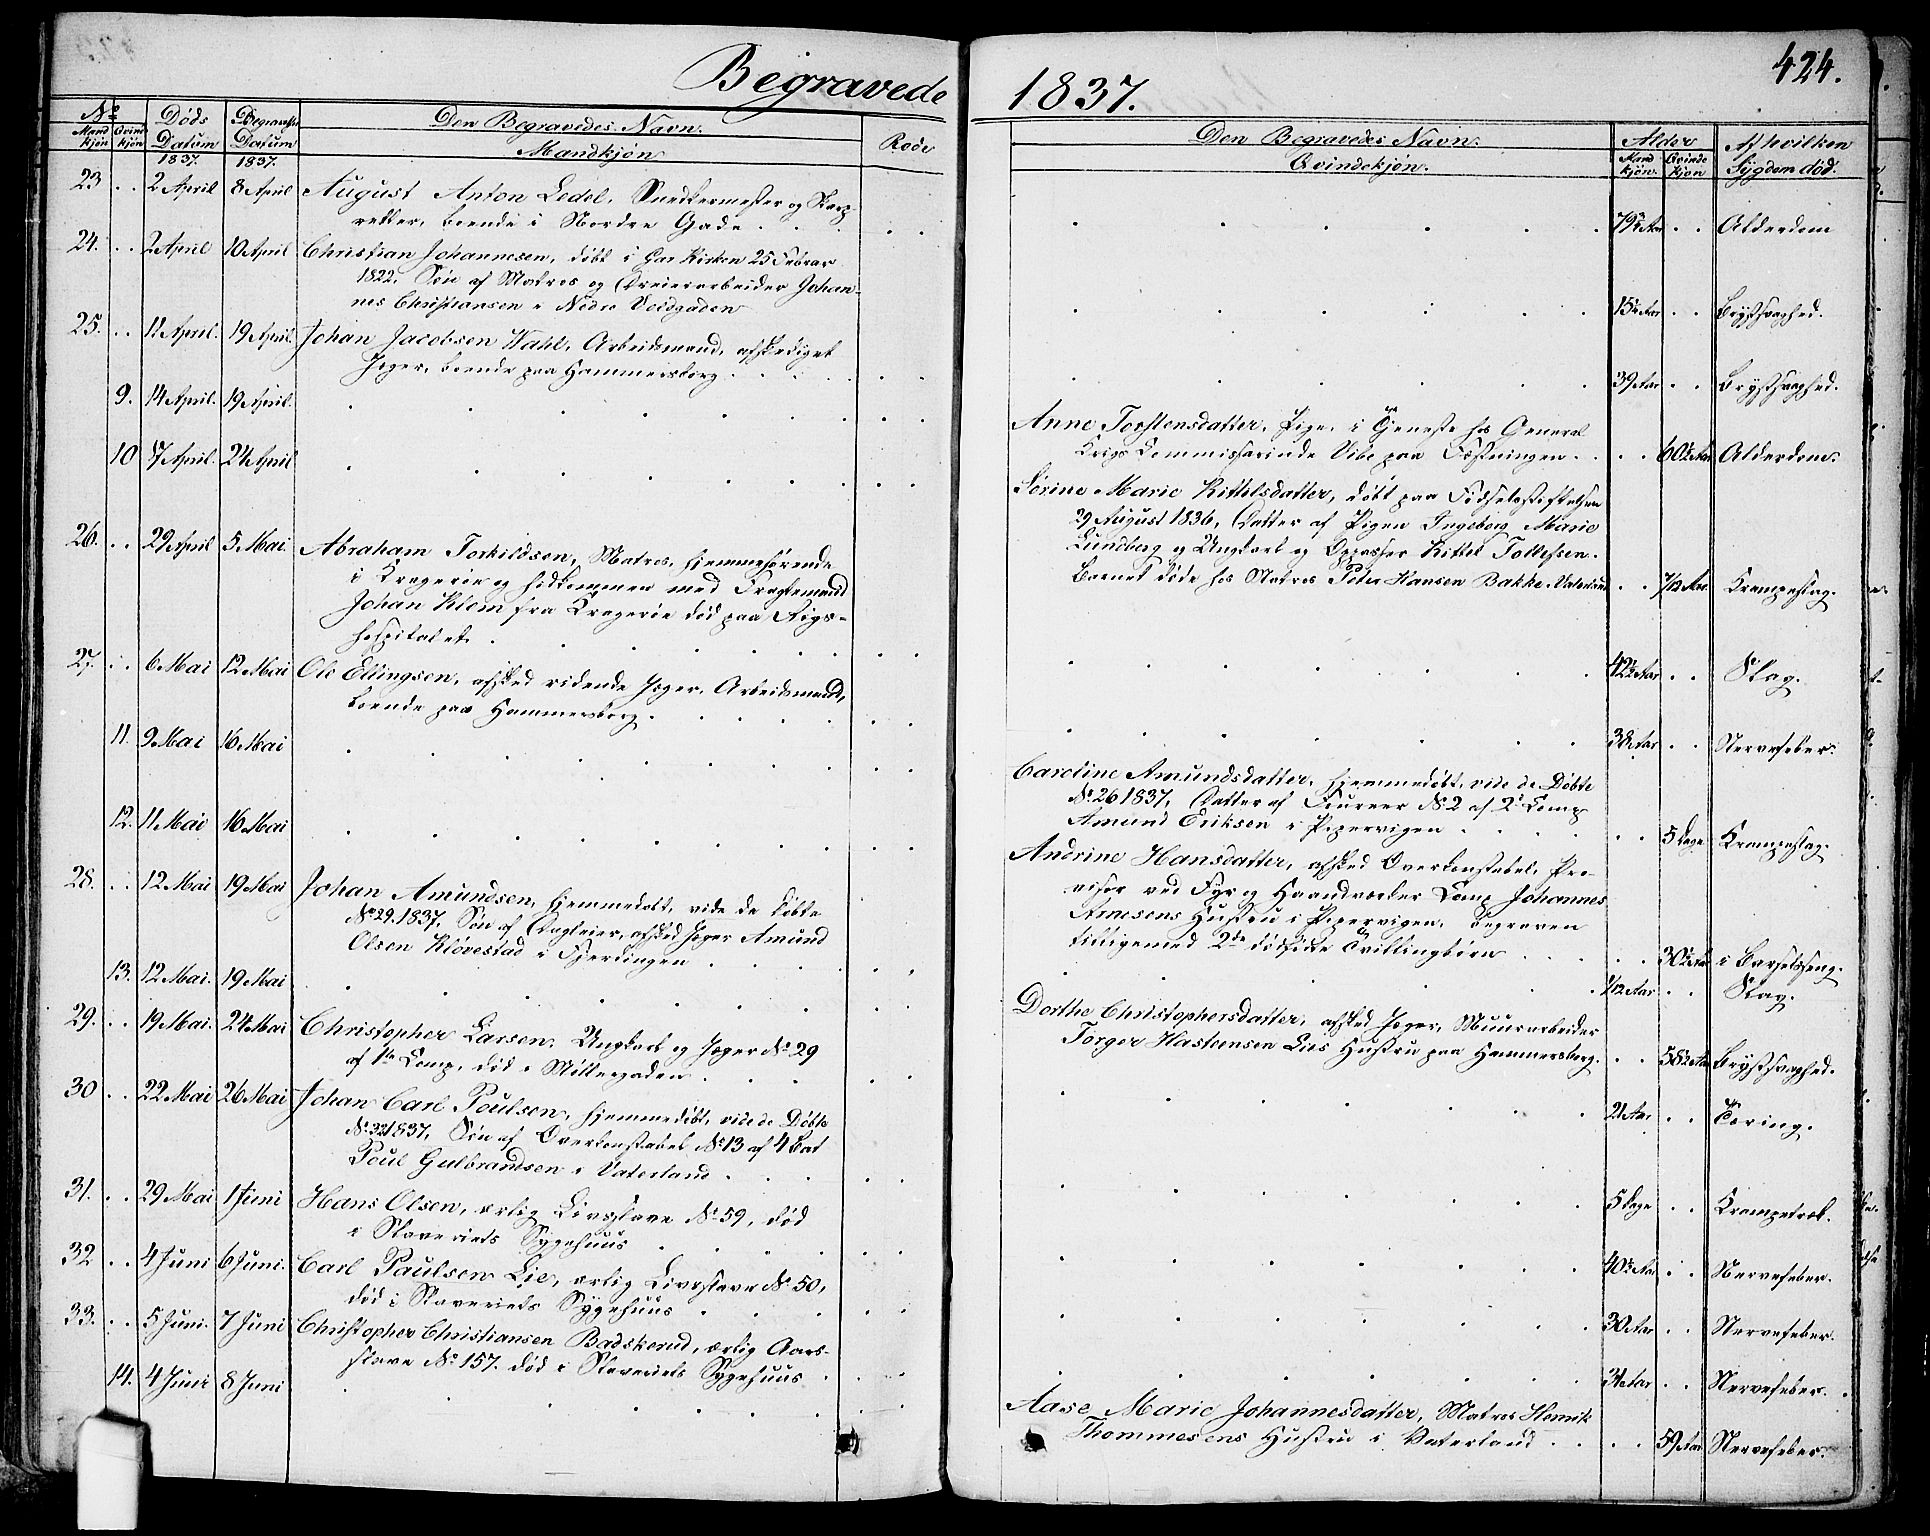 Begravede
1837.
424.
No
Mandkjøn
Qvindkjøn
Døds Datum 1837.
Begravelse Datum 1837.
Den Begravedes Navn.
Mandkjøn
Rode
Den Begravedes Navn.
Qvindekjøn.
Alder
Mandkjøn.
Qvindekjøn
Af hvilken Sygdom død.
23 . . 2 April 8 April August Anton Ledel, Snedkermester og Skarp-
retter, boende i Nordre Gade . . . 79½ Aar . . Alderdom
24. . . 2 April 10 April Christian Johannesen, døbt i Gar Kirken 25 Februar
1822. Søn af Matros og Dreierarbeider Johan-
nes Christiansen i Nedre Voldgaden 15¼ Aar . . Brystsvaghed.
25. . . 11 April. 19 April. Johan Jacobsen Wahl, Arbeidsmand, afskediget
Jæger, boende paa Hammersborg . . . 39 Aar . . Brystsvaghed.
9. 14 April. 19 April. Anne Torstensdatter, Pige i Tjeneste hos General
Krigs Commissairinde Vibe paa Fæstningen . . . 60½ Aar Alderdom.
10 17 April. 24 April Sørine Marie Kittilsdatter, døbt paa Fødselsstiftelsen
29 August 1836, Datter af Pigen Ingeborg Marie
Lundberg og Ungkarl og Oppasser Kittel Tollefsen.
Barnet døde hos Matros Peter Hansen Bakke i Vaterland . . 7/12 Aar. Krampeslag.
26. . . 29 April 5 Mai. Abraham Torkildsen, Matros, hjemmehørende
i Kragerøe og hidkommen med Fragtemand
Johan Klom fra Kragerøe død paa Rigs-
hospitalet . . . 42½ Aar . . Slag.
27. . . 6 Mai 12 Mai Ole Ellingsen, afsked ridende Jæger, Arbeidsmand,
boende paa Hammersborg . . . 38 Aar . . Nervefeber.
11. 9 Mai 16 Mai Caroline Amundsdatter, hjemmedøbt, vide de Døbte
No. 26 1837, Datter af Foureer No. 2 af 2 Comp
Amund Eriksen i Pipervigen . . . 5 Dage Krampeslag.
12. 11 Mai 16 Mai Andrine Hansdatter, afsked Overkonstabel, Pro-
visor ved Fyr og Haandværker Comp Johannes
Arnesens Hustru i Pipervigen, begraven
tilligemed 2de dødfødte Tvillingbørn . . . 30½ Aar i Barselseng.
28. . . 12 Mai 19 Mai Johan Amundsen, hjemmedøbt, vide de Døbte
No. 29. 1837, Søn af Dagleier, afsked Jæger Amund
Olsen Kløvestad i Fjerdingen . . . 1/12 Aar . . Slag.
13. 12 Mai. 19 Mai Dorthe Christophersdatter, afsked Jæger, Muurarbeider
Torger Hastensen Lies Hustru paa Hammersborg. . . 58½ Aar Brystsvaghed.
29. . . 19 Mai. 24 Mai Christopher Larsen, Ungkarl og Jæger No. 29
af 1te Comp, død i Møllergaden . . . 21 Aar . . Tæring.
30 . . 22 Mai 26 Mai Johan Carl Poulsen, hjemmedøbt, vide de Døbte
No. 32 1837, Søn af Overkonstabel No. 13 af 4 Bat
Poul Gulbrandsen i Vaterland . . . 5 Dage . . Krampetrek.
31. . . 29 Mai 1 Juni Hans Olsen, ærlig Livsslave No. 59, død
i Slaveriets Sygehuus . . . 40½ Aar . . Nervefeber.
32 . . 4 Juni 6 Juni. Carl Paulsen Lie, ærlig Livsslave No. 50,
død i Slaveriets Sygehuus . . . 30 Aar . . Nervefeber.
33. . . 5 Juni. 7 Juni Christopher Christiansen Badskerud, ærlig Aars-
slave No. 157. død i Slaveriets Sygehuus . . . 34 Aar . . Nervefeber.
14. 4 Juni 8 Juni Aase Marie Johannesdatter, Matros Henrik
Thommesens Hustru i Vaterland . . . 59 Aar Nervefeber.